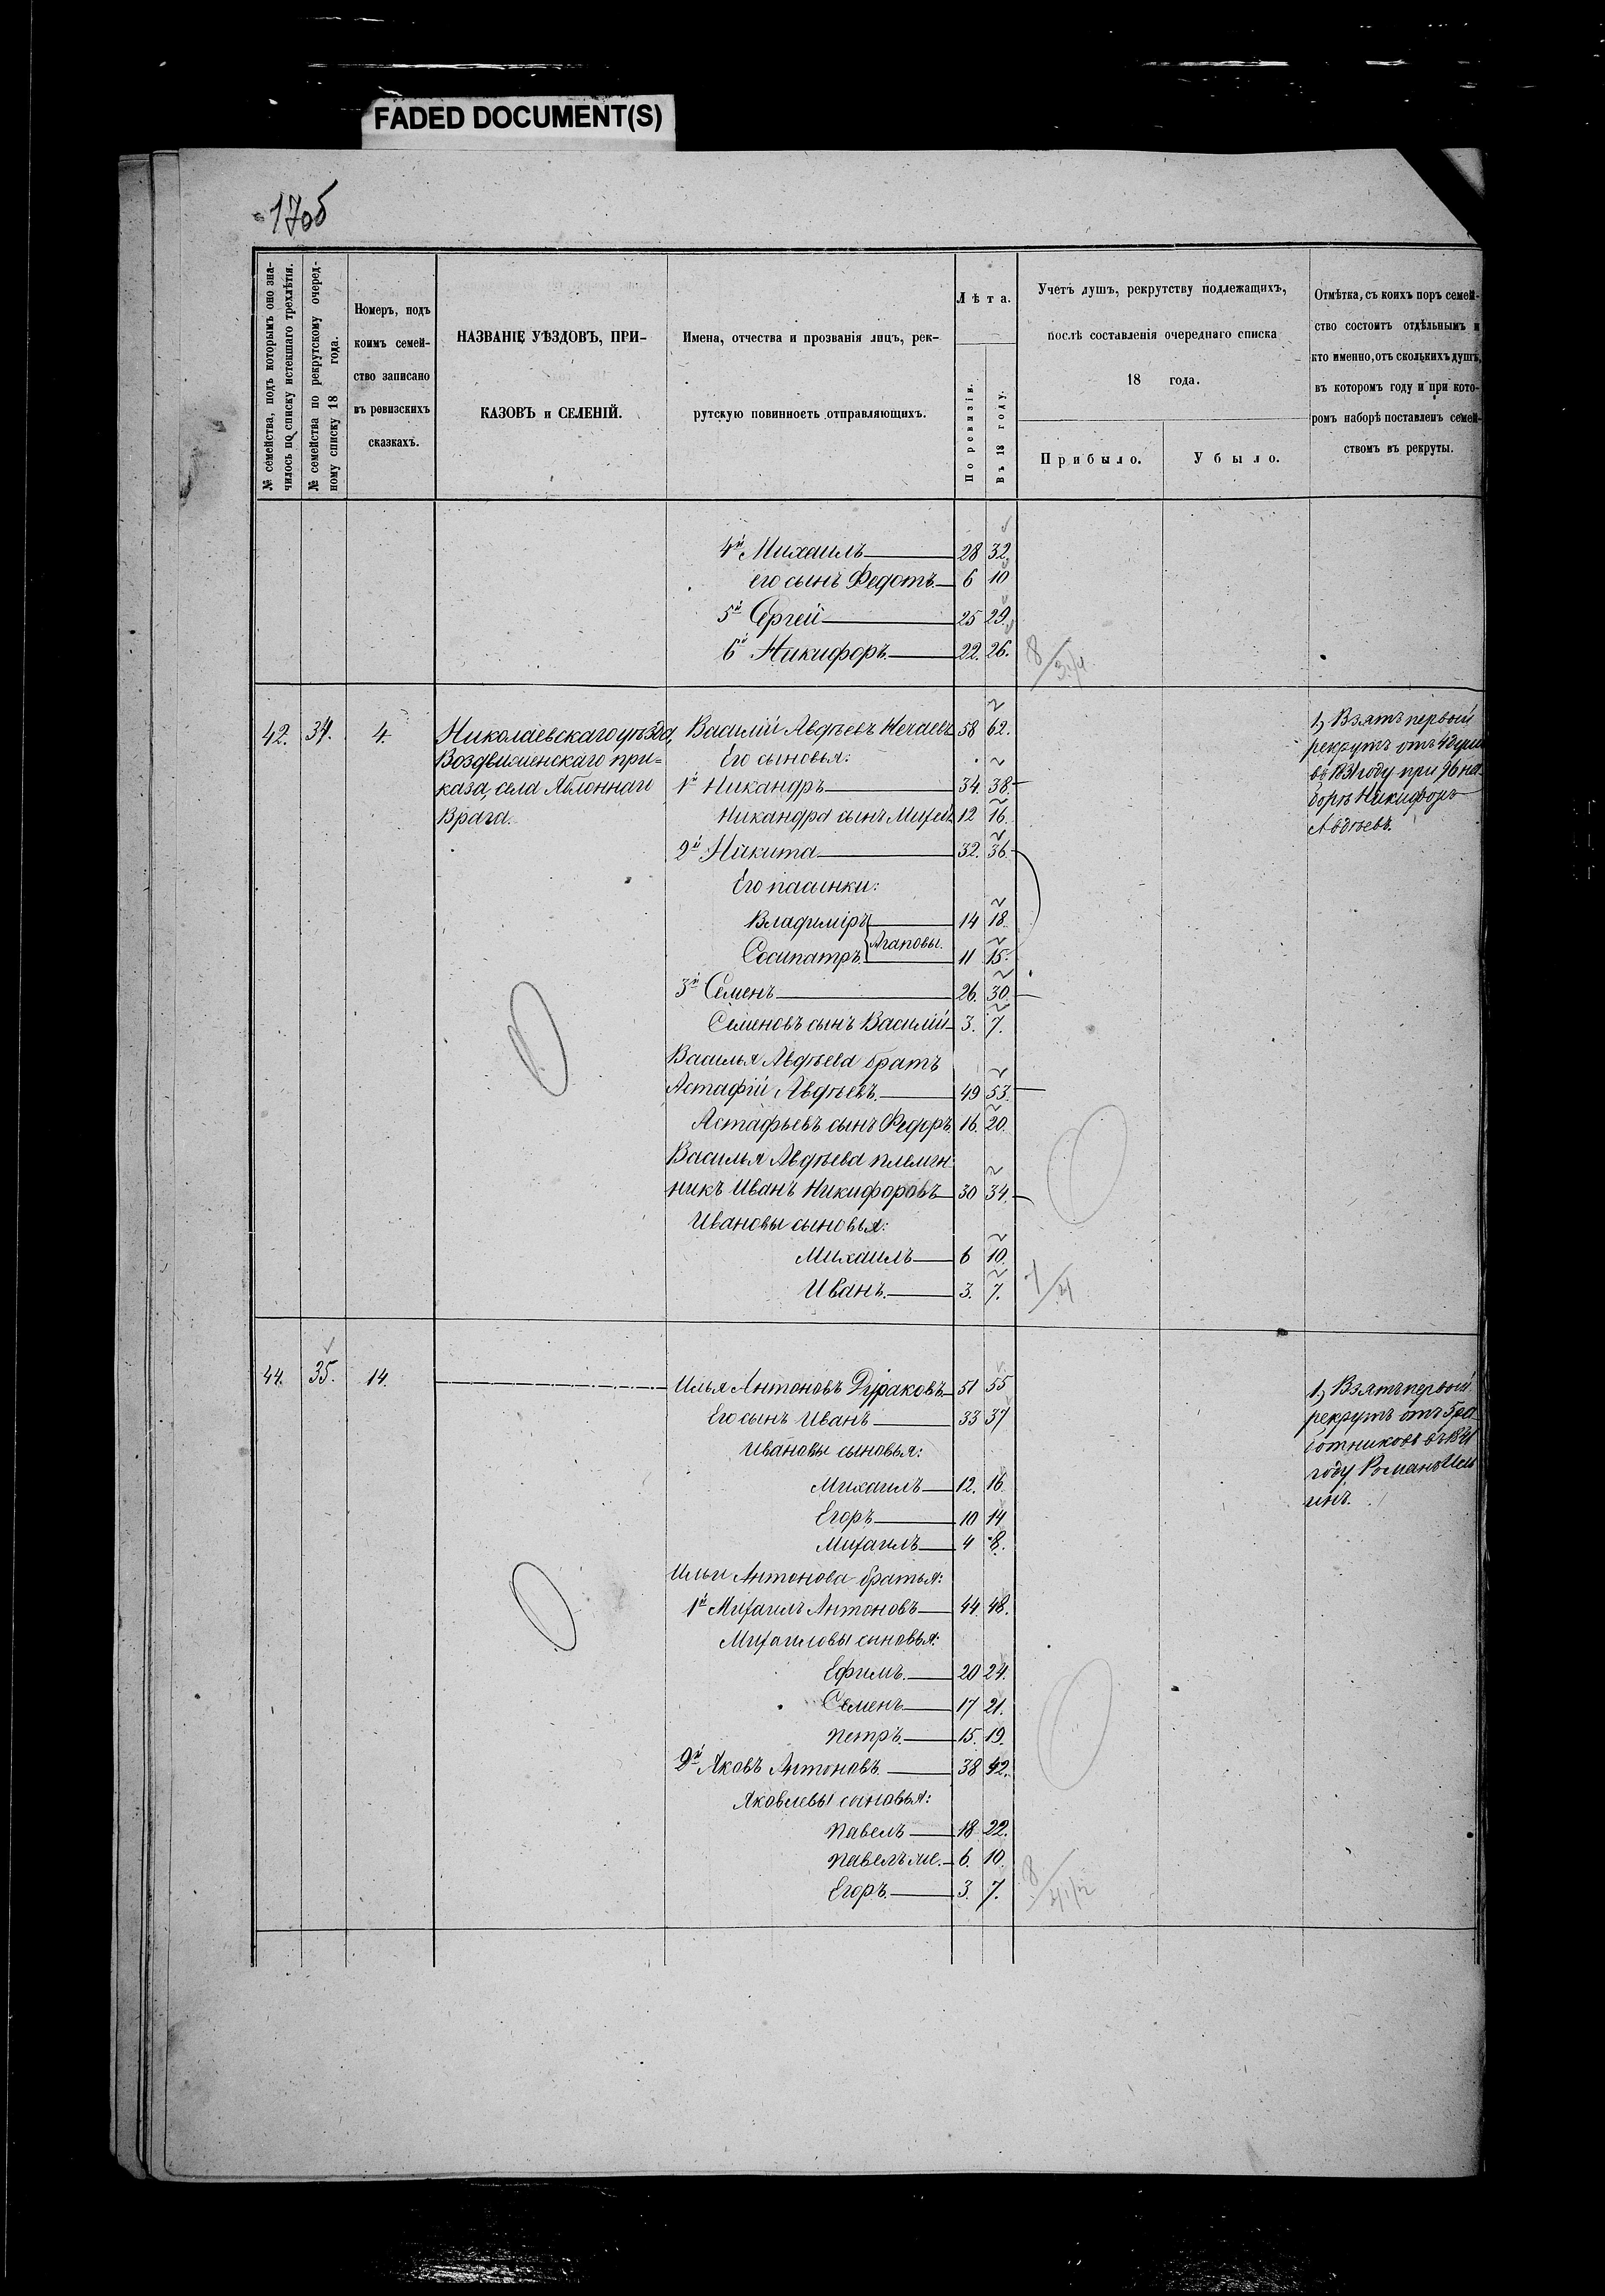 FADED DOCUMENT(S)
170б
№ семейства, подъ которымъ оно зна-
чилось по списку истекшаго трехлѣтія.
№ семейства по рекрутскому очеред-
ному списку 18 года.
Номеръ, подъ
коимъ семей-
ство записано
въ ревизскихъ
сказкахъ.
НАЗВАНІЕ УѢЗДОВЪ, ПРИ-
КАЗОВЪ и СЕЛЕНІЙ.
Имена, отчества и прозванія лицъ, рек-
рутскую повинность отправляющихъ.
Лѣта.
По ревизіи.
Въ 18 году.
Учетъ душъ, рекрутству подлежащихъ,
послѣ составленія очереднаго списка
18 года.
Прибыло.
Убыло.
Отмѣтка, съ коихъ поръ семей-
ство состоитъ отдѣльнымъ и
кто именно, отъ сколькихъ душъ,
въ которомъ году и при кото-
ромъ наборѣ поставленъ семей-
ствомъ въ рекруты.
4й Михаилъ 28 32.
его сынъ Федотъ 6 10
5й Сергей 25 29.
6й Никифоръ 22. 26. 8/3/4
42. 34. 4. Николаевскаго уѣзда,
Воздвиженскаго при=
каза, села Яблоннаго
Врага.
Василій Авдѣевъ Нечаевъ 58 62.
Его сыновья:
1й Никандръ 34. 38.
Никандра сынъ Михей 12 16.
2й Никита 32. 36.
Его пасынки:
Владиміръ 14 18.
Агаповы.
Сосипатръ 11 15.
3й Семенъ 26. 30.
Семеновъ сынъ Василій 3. 7.
Василья Авдѣева братъ
Астафій Авдѣевъ. 49 53.
Астафьевъ сынъ Федоръ 16. 20.
Василья Авдѣева племян
никъ Иванъ Никифоровъ 30 34.
Ивановы сыновья:
Михаилъ 6 10.
Иванъ. 3. 7. 7/4
1., Взятъ первый
рекрутъ отъ 4 душъ
въ 1831 году при 96 на
борѣ Никифоръ
Авдѣевъ.
44. 35. 14.
Илья Антоновъ Дураковъ 51 55
Его сынъ Иванъ 33 37
Ивановы сыновья:
Михаилъ 12. 16
Егоръ 10 14
Михаилъ 4 8.
Ильи Антонова братья:
1й Михаилъ Антоновъ 44. 48.
Михаиловы сыновья:
Ефимъ. 20 24.
Семенъ 17 21.
Петръ. 15. 19.
2й Яковъ Антоновъ. 38 42.
Яковлевы сыновья:
Павелъ 18 22.
Павелъ же. 6. 10.
Егоръ. 3. 7. 8
1., Взятъ первый
рекрутъ отъ 5 ра
ботниковъ въ 1841
году Романъ Иль
инъ.